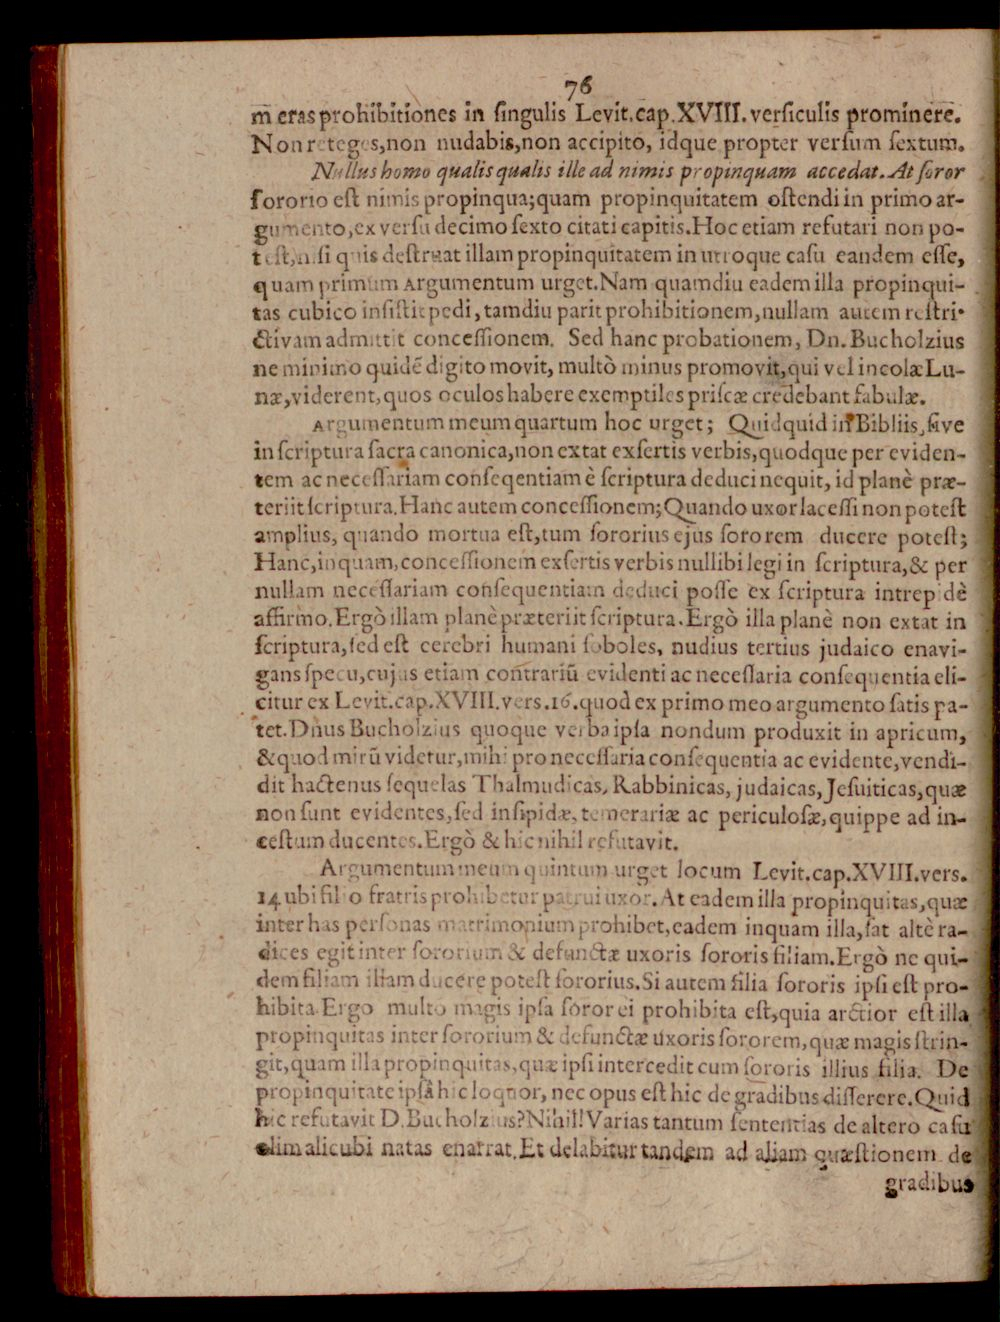 76
m̃ eras prohibitiones in ſingulis Levit.cap.XVIII.verſiculis prominere.
Non reteges,non nudabis,non accipito, idque propter verſum ſextum.
Nullus homo qualis qualis ille ad nimis propinquam accedat. At ſoror
ſororio eſt nimis propinqua;quam propinquitatem oſtendi in primo ar-
gumento,ex verſu decimo ſexto citati capitis.Hoc etiam refutari non po-
teſt,niſi quis deſtruat illam propinquitatem in utroque caſu eandem eſſe,
quam primum Argumentum urget.Nam quamdiu eadem illa propinqui-
tas cubico inſiſtit pedi, tamdiu parit prohibitionem,nullam autem reſtri-
ctivam admittit conceſſionem. Sed hanc probationem, Dn. Bucholzius
ne minimo quidẽ digito movit, multò minus promovit,qui vel incolæ Lu-
næ,viderent,quos oculos habere exemptiles priſcæ credebant fabulæ.
Argumentum meum quartum hoc urget; Quidquid in Bibliis,ſive
in ſcriptura ſacra canonica,non extat exſertis verbis,quodque per eviden-
tem ac neceſſariam conſeqentiam è ſcriptura deduci nequit, id planè præ-
teriit ſcriptura.Hanc autem conceſſionem;Quando uxor laceſſi non poteſt
amplius, quando mortua eſt,tum ſororius ejus ſororem ducere poteſt;
Hanc,inquam,conceſſionem exſertis verbis nullibi legi in ſcriptura,& per
nullam neceſſariam conſequentiam deduci poſſe ex ſcriptura intrepidè
affirmo.Ergò illam planè præteriit ſcriptura.Ergò illa planè non extat in
ſcriptura,ſed eſt cerebri humani ſoboles, nudius tertius judaico enavi-
gans ſpecu,cujus etiam contrariũ evidenti ac neceſſaria conſequentia eli-
citur ex Levit.cap.XVIII.vers.16.quod ex primo meo argumento ſatis pa-
tet.Dnus Bucholzius quoque verba ipſa nondum produxit in apricum,
&quod mirũ videtur,mihi pro neceſſaria conſequentia ac evidente,vendi-
dit hactenus ſequelas Thalmudicas, Rabbinicas, judaicas, Jeſuiticas,quæ
non ſunt evidentes,ſed inſipidæ, temerariæ ac periculoſæ,quippe ad in-
ceſtum ducentes.Ergò & hic nihil refutavit.
Argumentum meum quintum urget locum Levit.cap.XVIII.vers.
14.ubi filio fratris prohibetur patrui uxor.At eadem illa propinquitas,quæ
inter has perſonas matrimonium prohibet,eadem inquam illa,ſat altè ra-
dices egit inter ſororium & defunctæ uxoris ſororis filiam.Ergò ne qui-
dem filiam illam ducere poteſt ſororius.Si autem filia ſororis ipſi eſt pro-
hibita.Ergo multo magis ipſa ſoror ei prohibita eſt,quia arctior eſt illa
propinquitas inter ſororium & defunctæ uxoris ſororem,quæ magis ſtrin-
git,quam illa propinquitas,quæ ipſi intercedit cum ſororis illius filia. De
propinquitate ipsâ hic loquor, nec opus eſt hic de gradibus diſſerere.Quid
hic refutavit D.Bucholzius?Nihil!Varias tantum ſententias de altero caſu
olim alicubi natas enarrat.Et delabitur tandem ad aliam quæſtionem de
gradibus